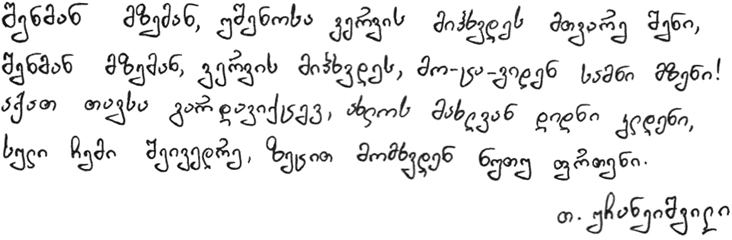 შენმან მზემან, უშენოსა ვერვის მიჰხვდეს მთვარე შენი,
შენმან მზემან, ვერვის მიჰხვდეს, მო-ცა-ვიდენ სამნი მზენი!
აქათ თავსა გარდავიქცევ, ახლოს მახლვან დიდნი კლდენი,
სული ჩემი შეივედრე, ზეცით მომხვდენ ნუთუ ფრთენი.
თ. უჩანეიშვილი